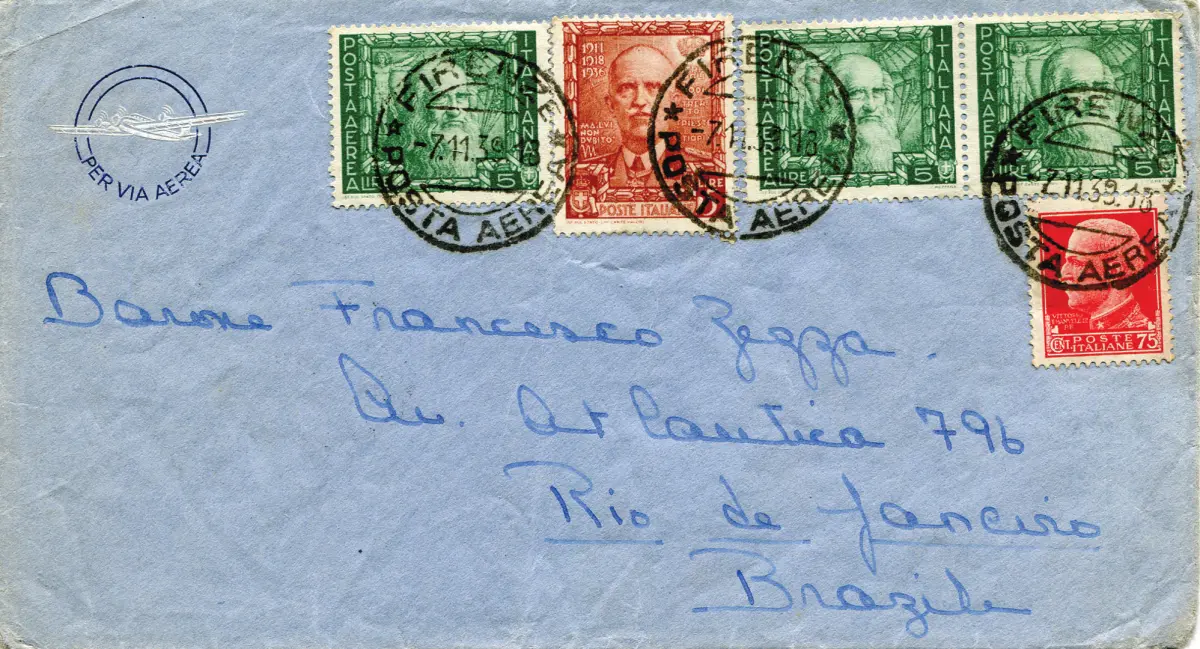 PER VIA AEREA
POSTA AEREA
ITALIANA
LIRE 5
FIRENZE
-7.11.39.18
POSTA AEREA
1911
1918
1936
MALVI
NON
DVBITO
POSTE ITALIANE
LIRE 5
FIRENZE
-7.11.39.18
POSTA AEREA
POSTA AEREA
ITALIANA
LIRE 5
POSTA AEREA
ITALIANA
5
FIRENZE
-7.11.39.18
POSTA AEREA
POSTE
ITALIANE
CENT. 75
Barone Francesco Zegza.
Av. Atlantica 796
Rio de Janeiro
Brazile